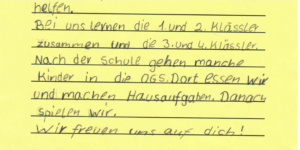 helfen.
Bei uns lernen die 1. und 2. Klässler
zusammen und die 3. und 4. Klässler.
Nach der Schule gehen manche
Kinder in die OGS. Dort essen wir
und machen Hausaufgaben. Danach
spielen wir.
Wir freuen uns auf dich!